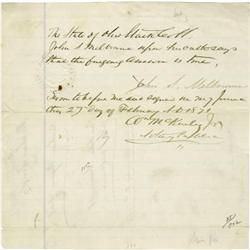 The State of Ohio
John S. Melbourne upon his oath says
that the foregoing answer is true,
John S. Melbourne
Sworn to before me and signed in my presence
this 27 day of February A.D. 1871
Wm McKinley Jr
Notary Public